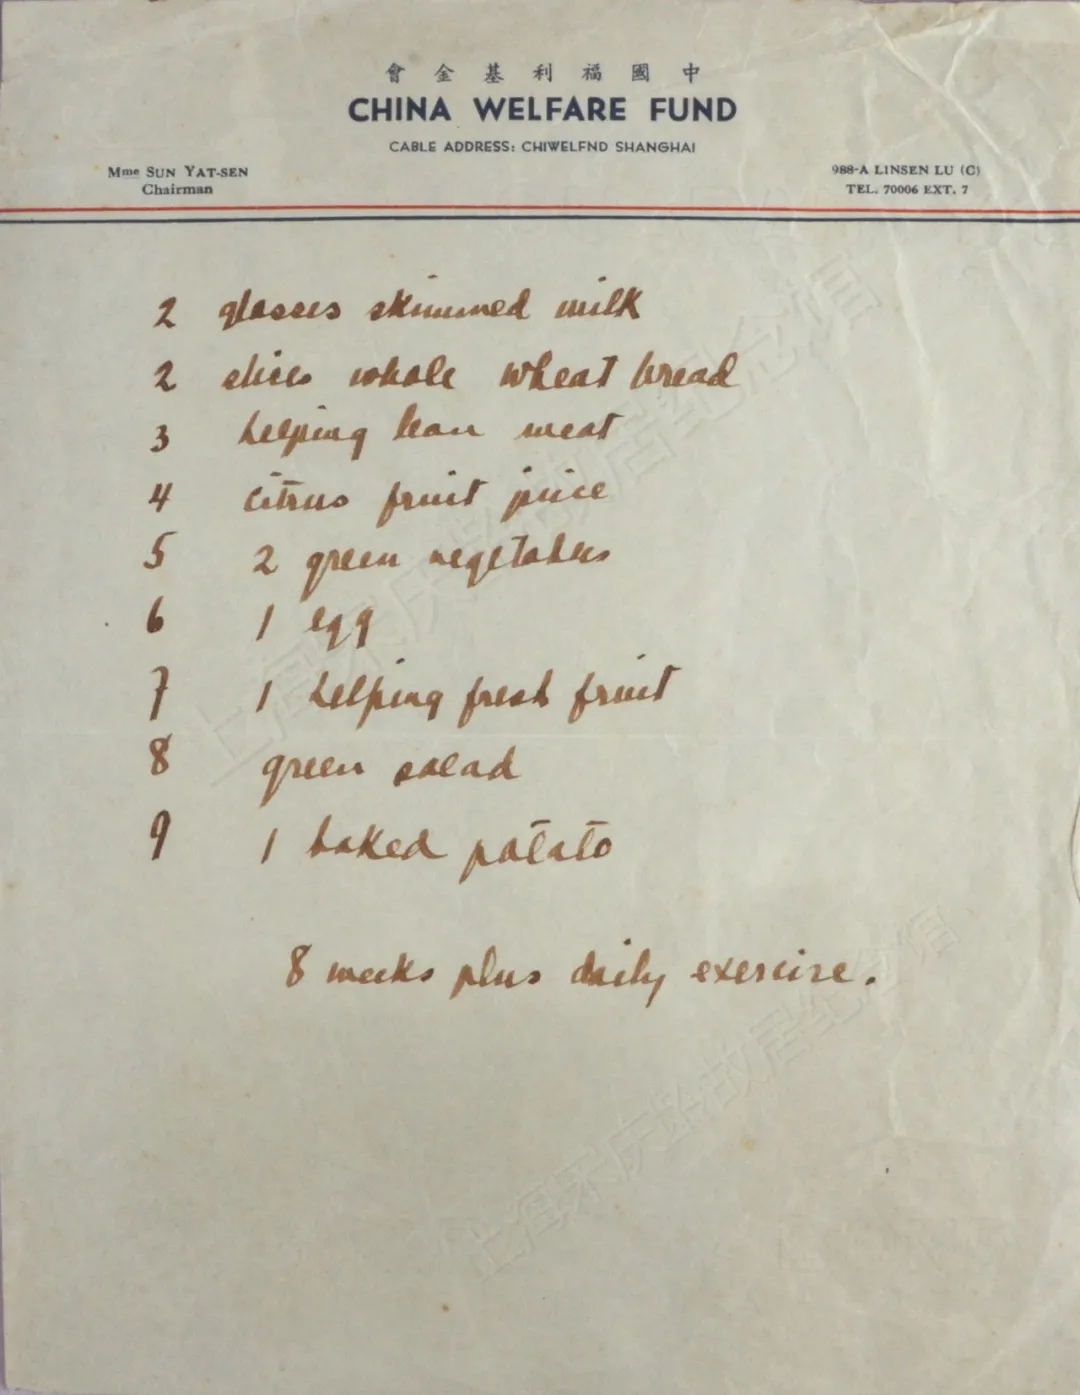 會金基利福國中
CHINA WELFARE FUND
CABLE ADDRESS: CHIWELFND SHANGHAI
Mme SUN YAT-SEN
Chairman
988-A LINSEN LU (C)
TEL. 70006 EXT. 7
2 glasses skimmed milk
2 slices whole wheat bread
3 helping lean meat
4 citrus fruit juice
5 2 green vegetables
6 1 egg
7 1 helping fresh fruit
8 green salad
9 1 baked potato
8 weeks plus daily exercise.
上海宋庆龄故居纪念馆
上海宋庆龄故居纪念馆